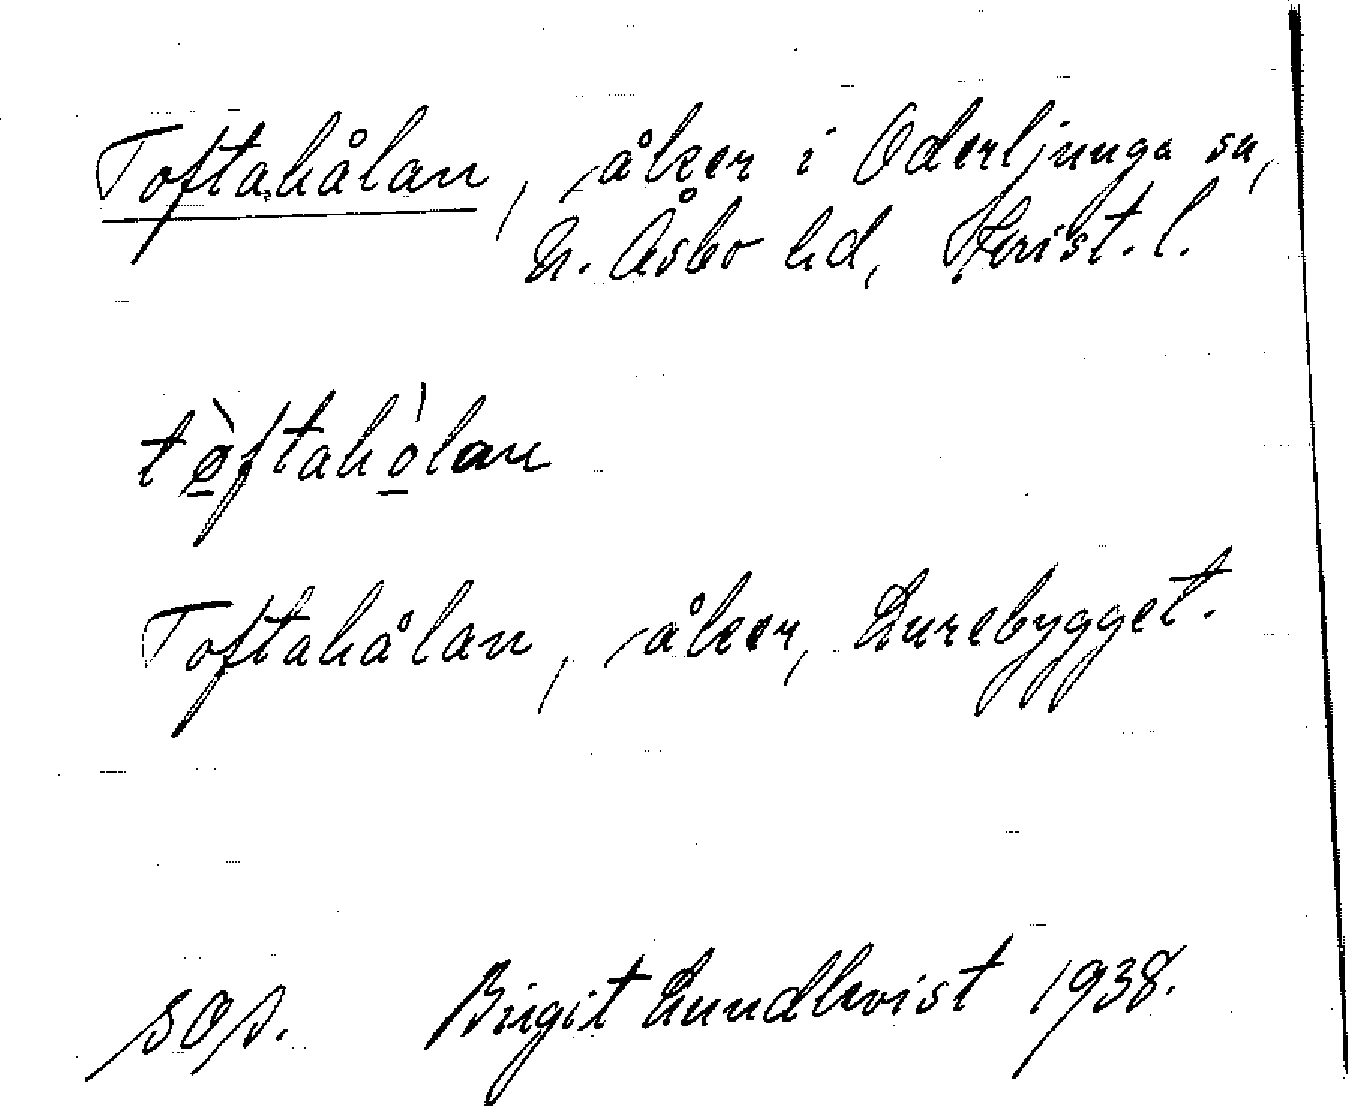 Toftahålan, åker i Oderljunga sn,
N. Åsbo hd, Krist. l.
tò̱ftahó̱lan
Toftahålan, åker, Lurebygget.
SOS. Birgit Lundkvist 1938.